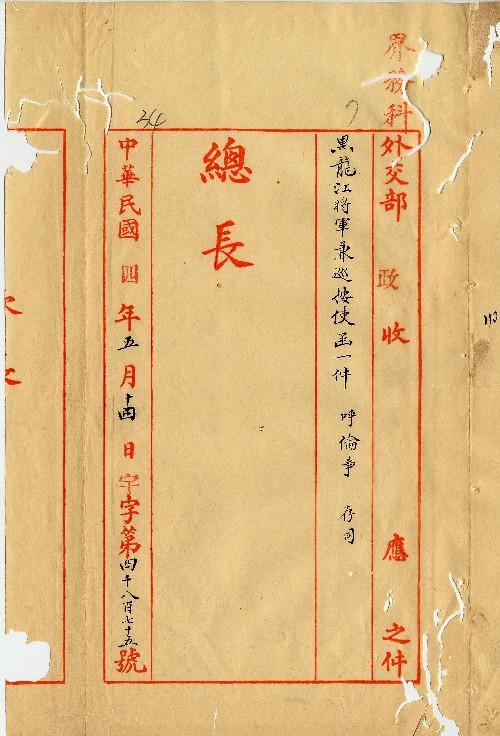 界務科
外交部 政 收 應 之件
黑龍江將軍兼巡按使函一件 呼倫事 存司
總長
中華民國四年五月十四日字字第四千八百七十五號
24
113